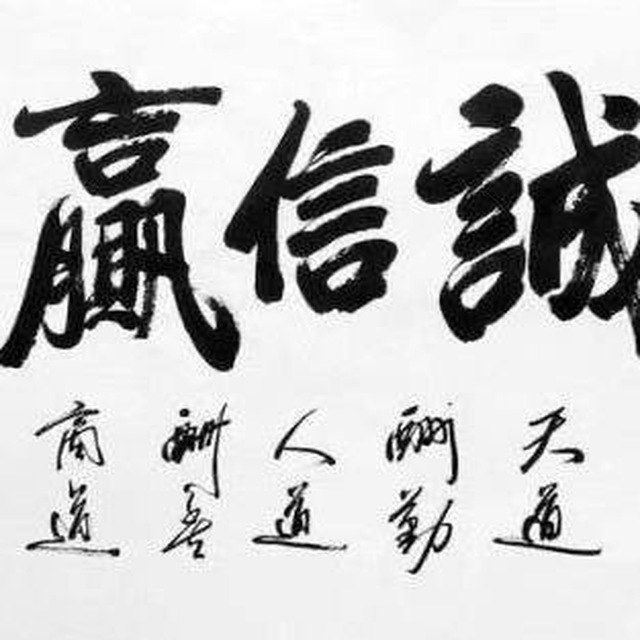 誠信贏
天道
酬勤
人道
酬善
商道